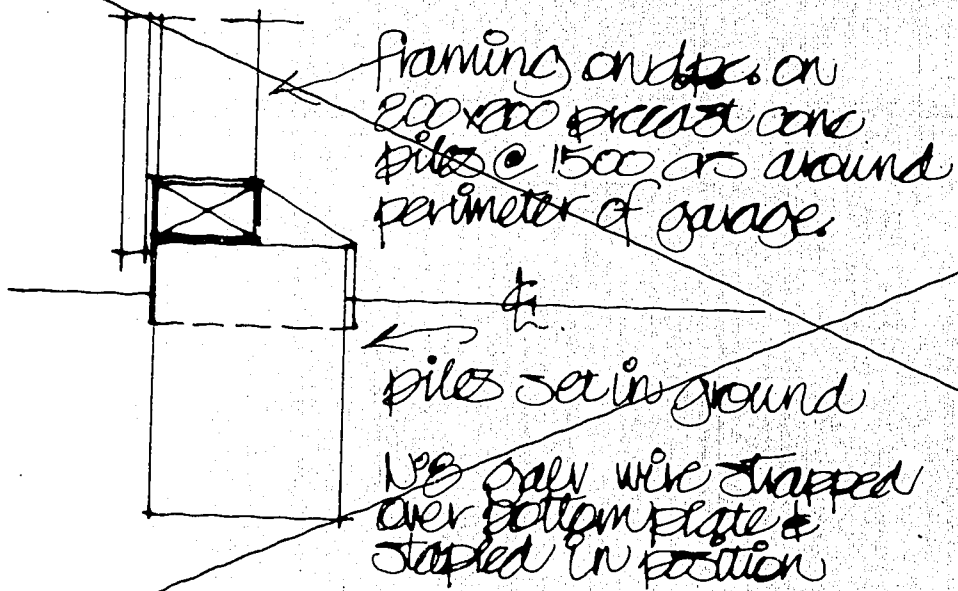 framing on dpc. on
200x200 precast conc
piles @ 1500 crs around
perimeter of garage.
piles set in ground
No8 galv wire strapped
over bottom plate &
stapled in position